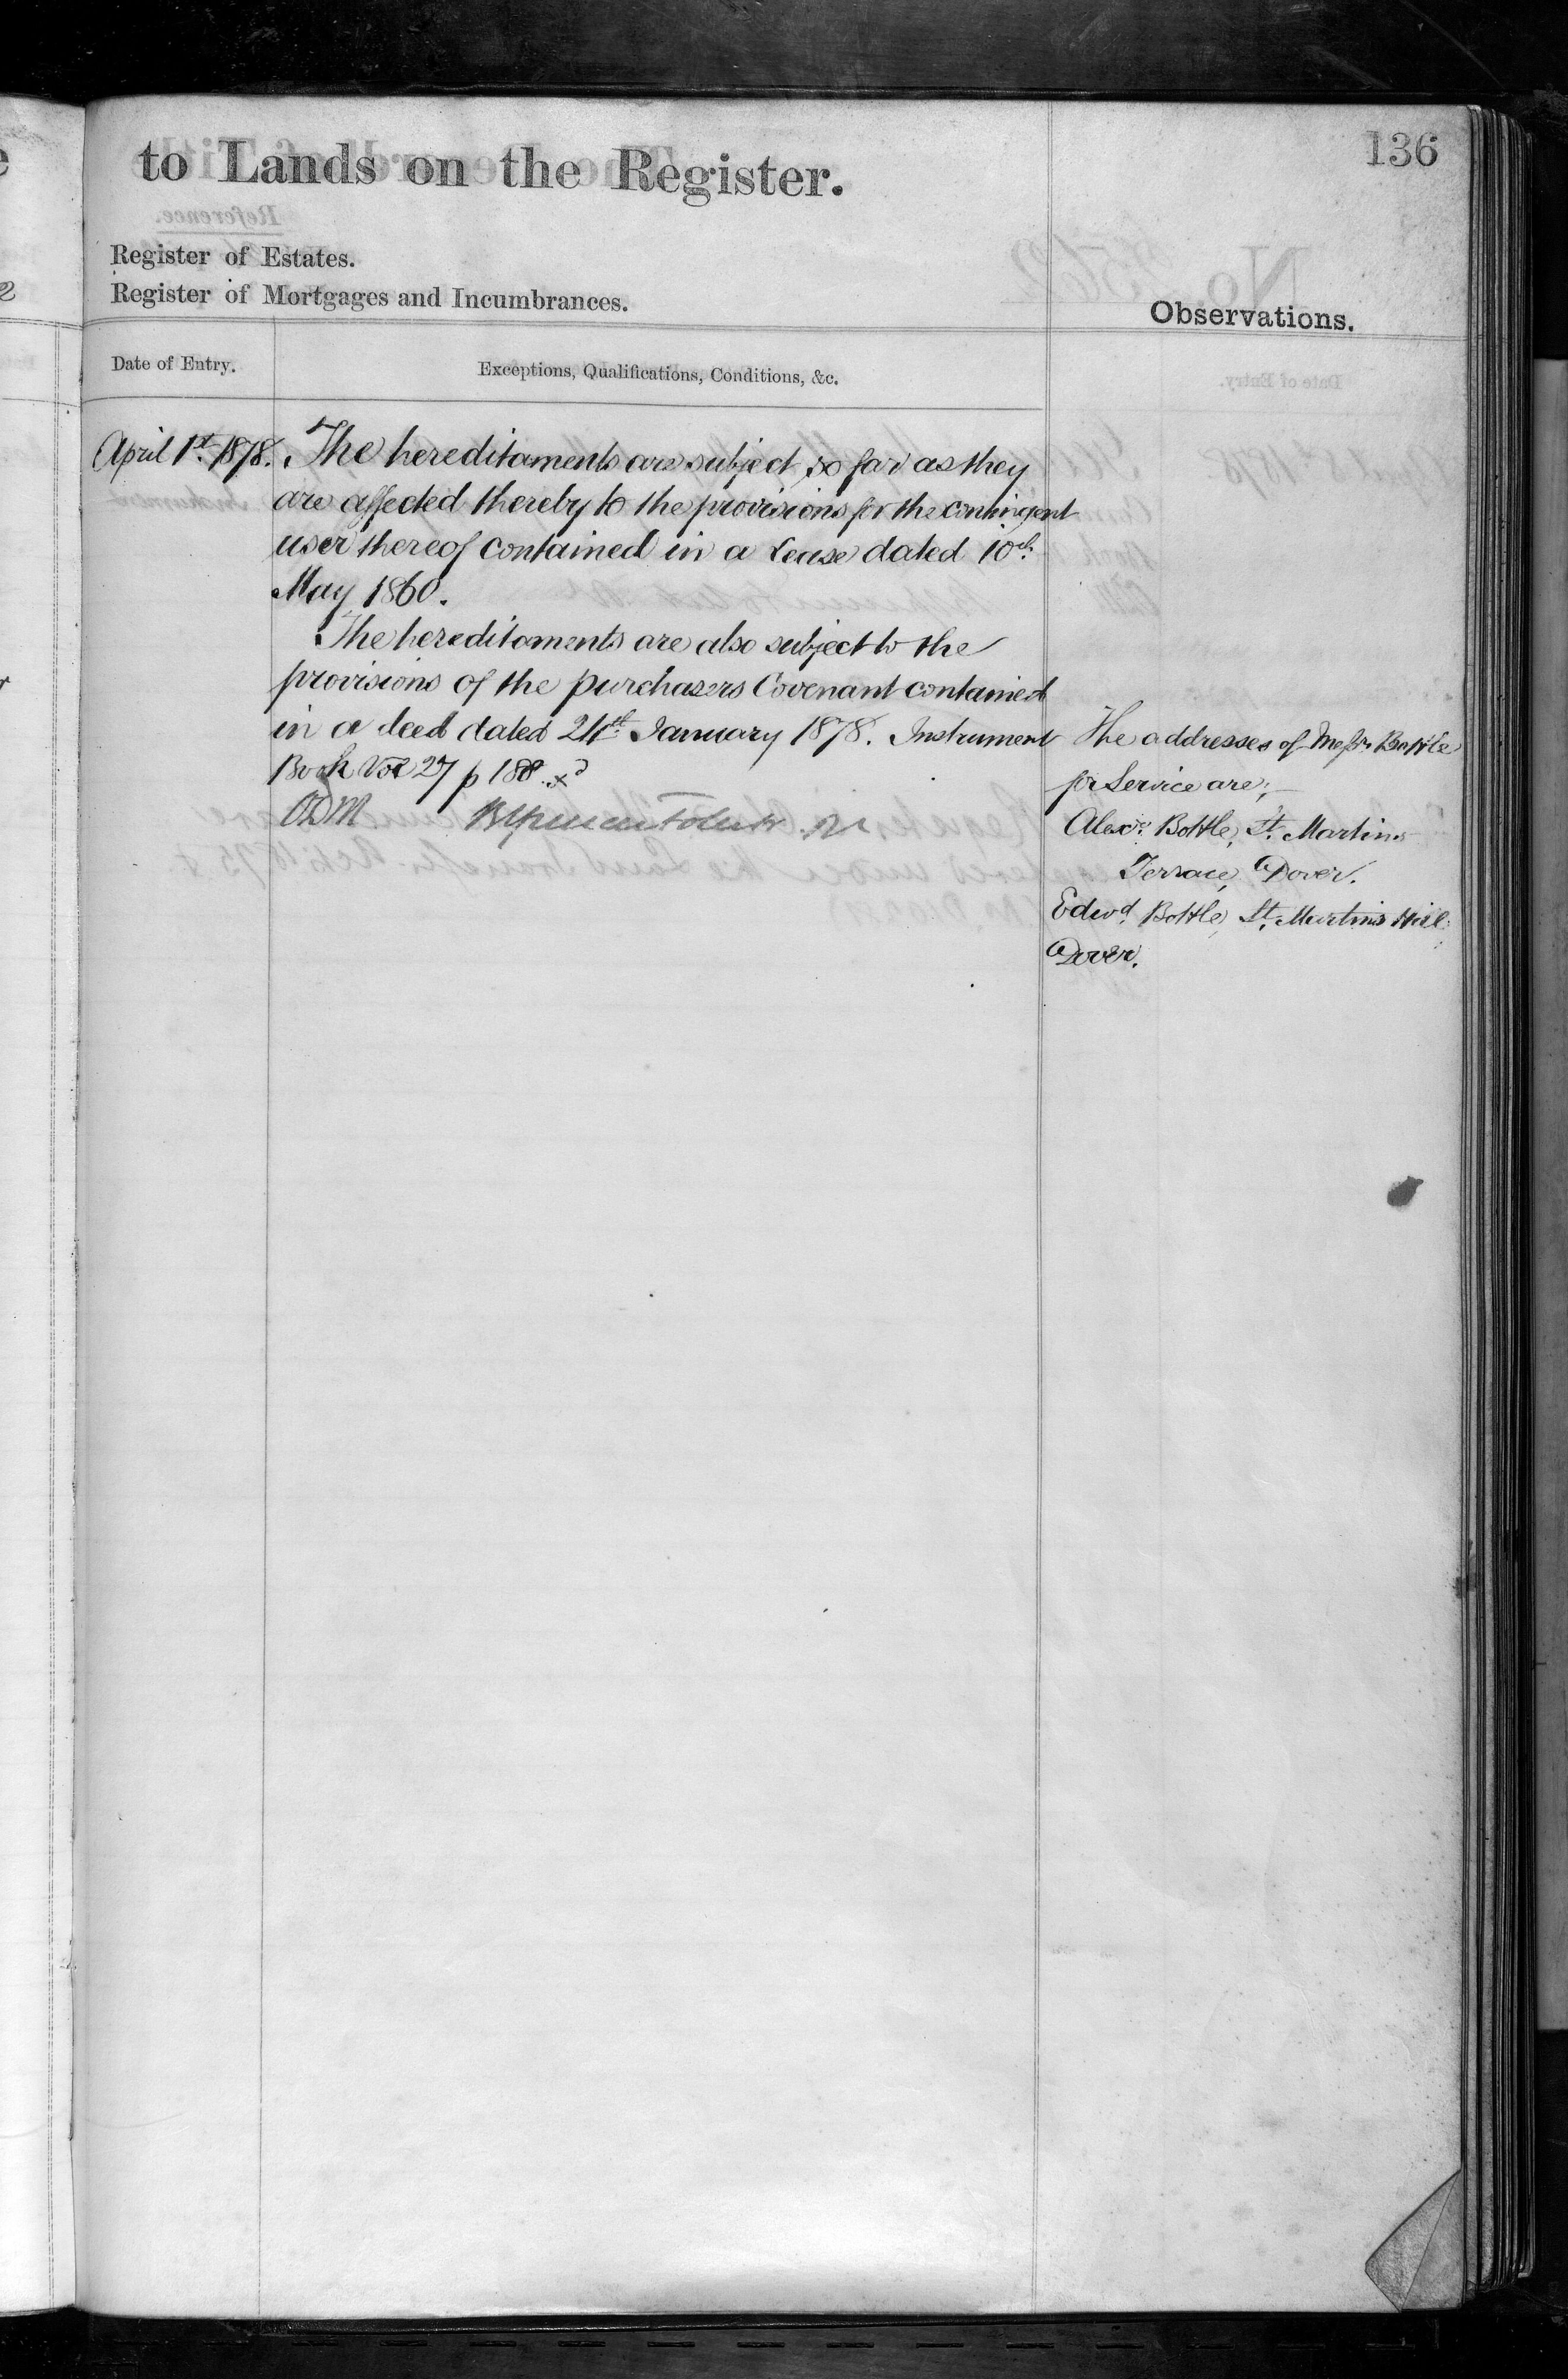 136
to Lands on the Register.
Register of Estates.
Register of Mortgages and Incumbrances.
Observations.
Date of Entry.
Exceptions, Qualifications, Conditions, &c.
April 1st 1878.
The hereditaments are subject so far as they
are affected thereby to the provisions for the contingent
user thereof contained in a Lease dated 10th
May 1860.
The hereditaments are also subject to the
provisions of the purchasers Covenant contained
in a deed dated 24th January 1878. Instrument
Book Vol 27 p 188
The addresses of Messrs Bottle
for Service are;
Alexr. Bottle, St. Martins
Terrace, Dover.
Edwd. Bottle, St. Martins Hill,
Dover.